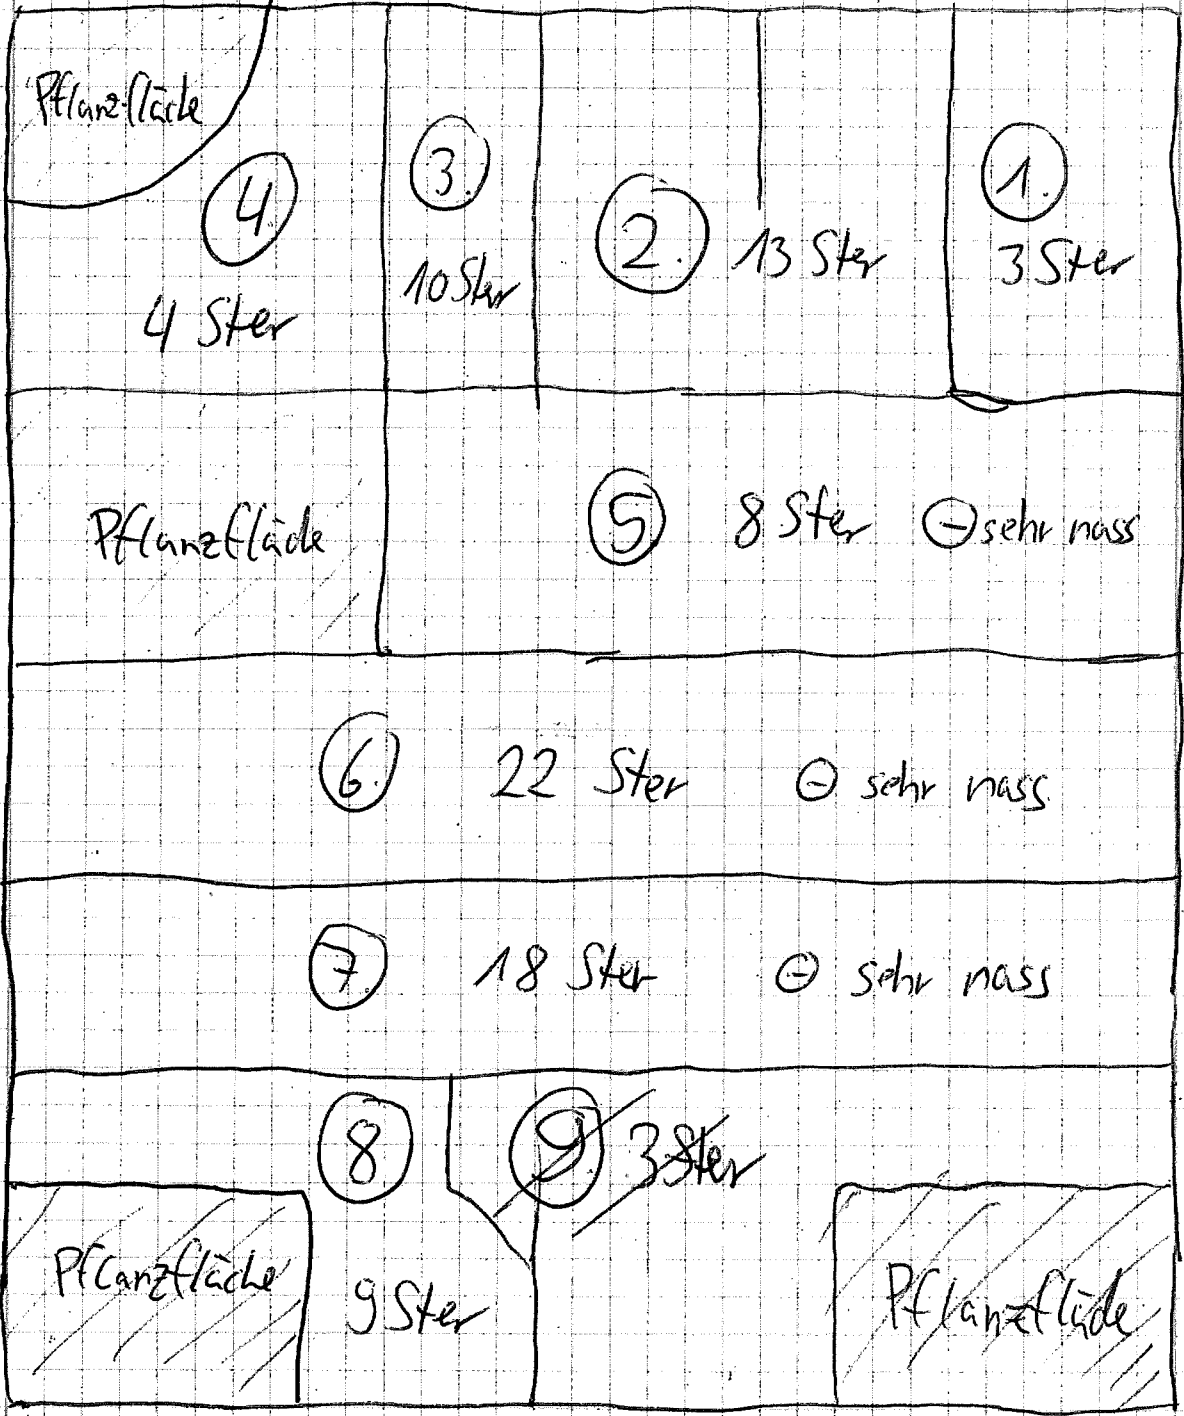 Pflanzfläche
4
4 Ster
3.
10 Ster
2.
13 Ster
1.
3 Ster
Pflanzfläche
5
8 Ster
⊖ sehr nass
6.
22 Ster
⊖ sehr nass
7
18 Ster
⊖ sehr nass
8
9
3 Ster
Pflanzfläche
9 Ster
Pflanzfläche